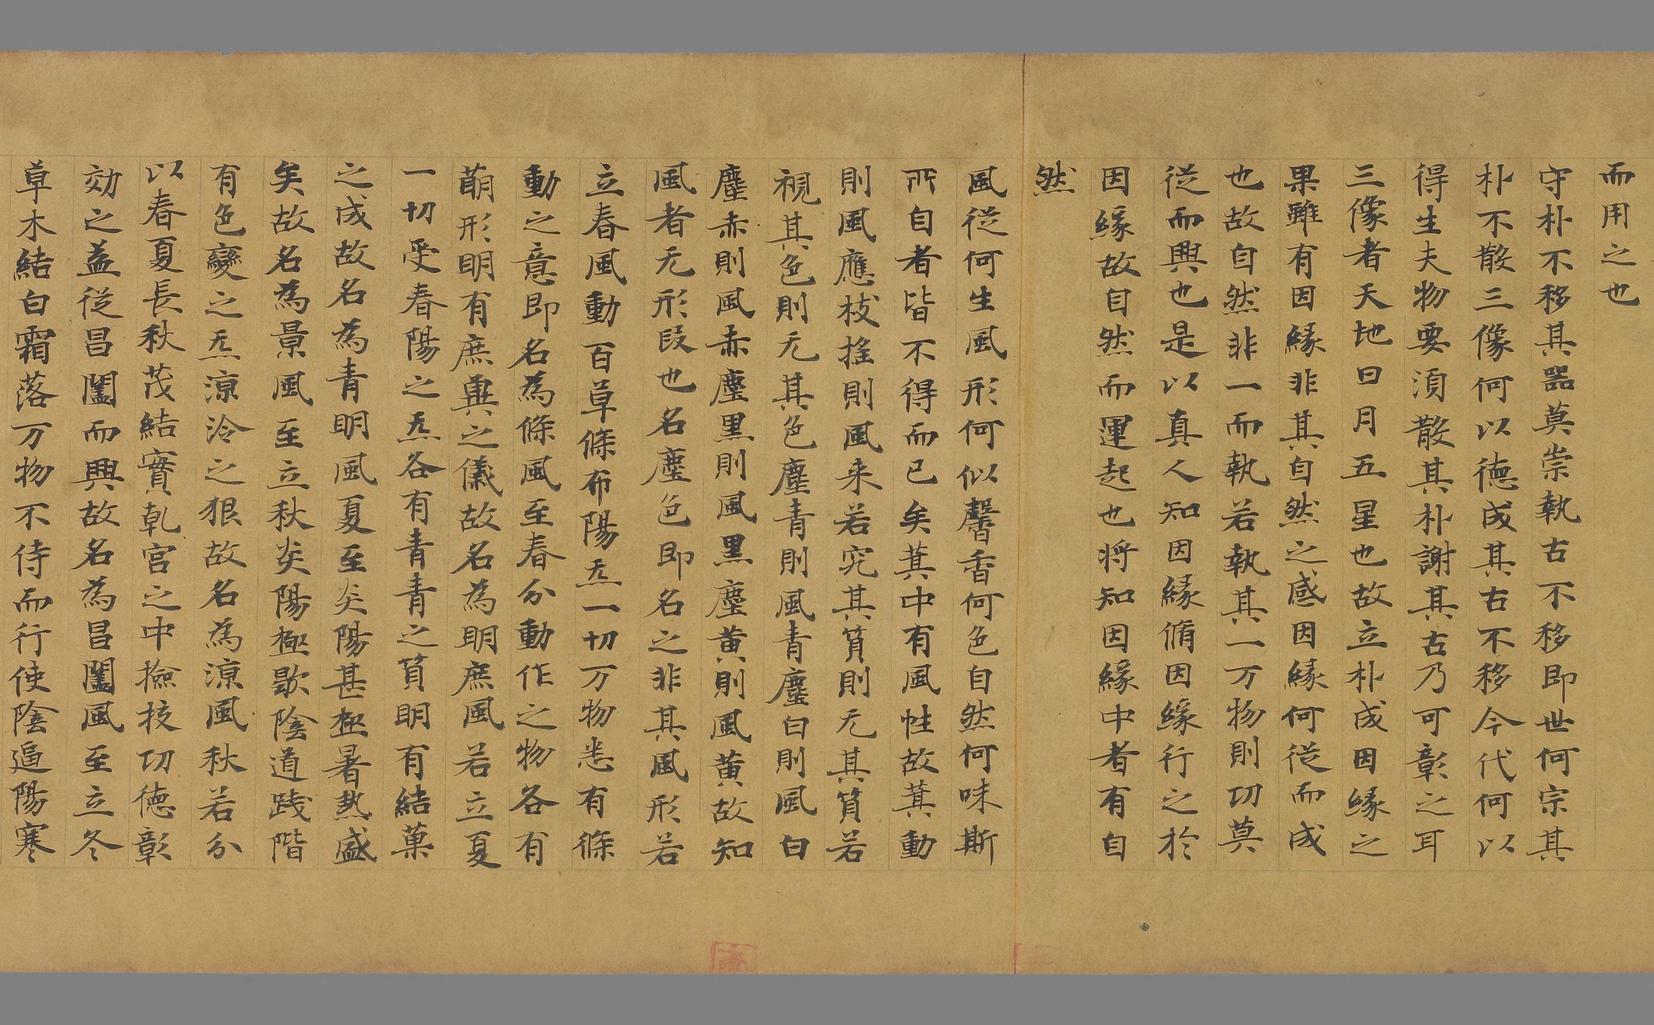 而用之也
守朴不移其器莫崇執古不移即世何宗其
朴不散三像何以德成其古不移今代何以
得生夫物要須散其朴謝其古乃可彰之耳
三像者天地日月五星也故立朴成因緣之
果雖有因緣非其自然之感因緣何從而成
也故自然非一而執若執其一万物則功莫
從而興也是以真人知因緣脩因緣行之於
因緣故自然而運起也将知因緣中者有自
然
風從何生風形何似馨香何色自然何味斯
所自者皆不得而已矣萁中有風性故萁動
則風應枝摇則風来若究其質則无其質若
視其色則无其色塵青則風青塵白則風白
塵赤則風赤塵黒則風黒塵黄則風黄故知
風者无形段也名塵色即名之非其風形若
立春風動百草條布陽炁一切万物悉有條
動之意即名為條風至春分動作之物各有
萠形明有庶㒵之儀故名為明庶風若立夏
一切受春陽之炁各有青青之質明有結菓
之成故名為青明風夏至炎陽甚極暑熱盛
矣故名為景風至立秋炎陽極歇陰道踐階
有色變之炁涼泠之狠故名為涼風秋若分
以春夏長秋茂結實乹宫之中撿挍功德彰
効之益從昌闔而興故名為昌闔風至立冬
草木結白霜落万物不侍而行使陰逼陽寒